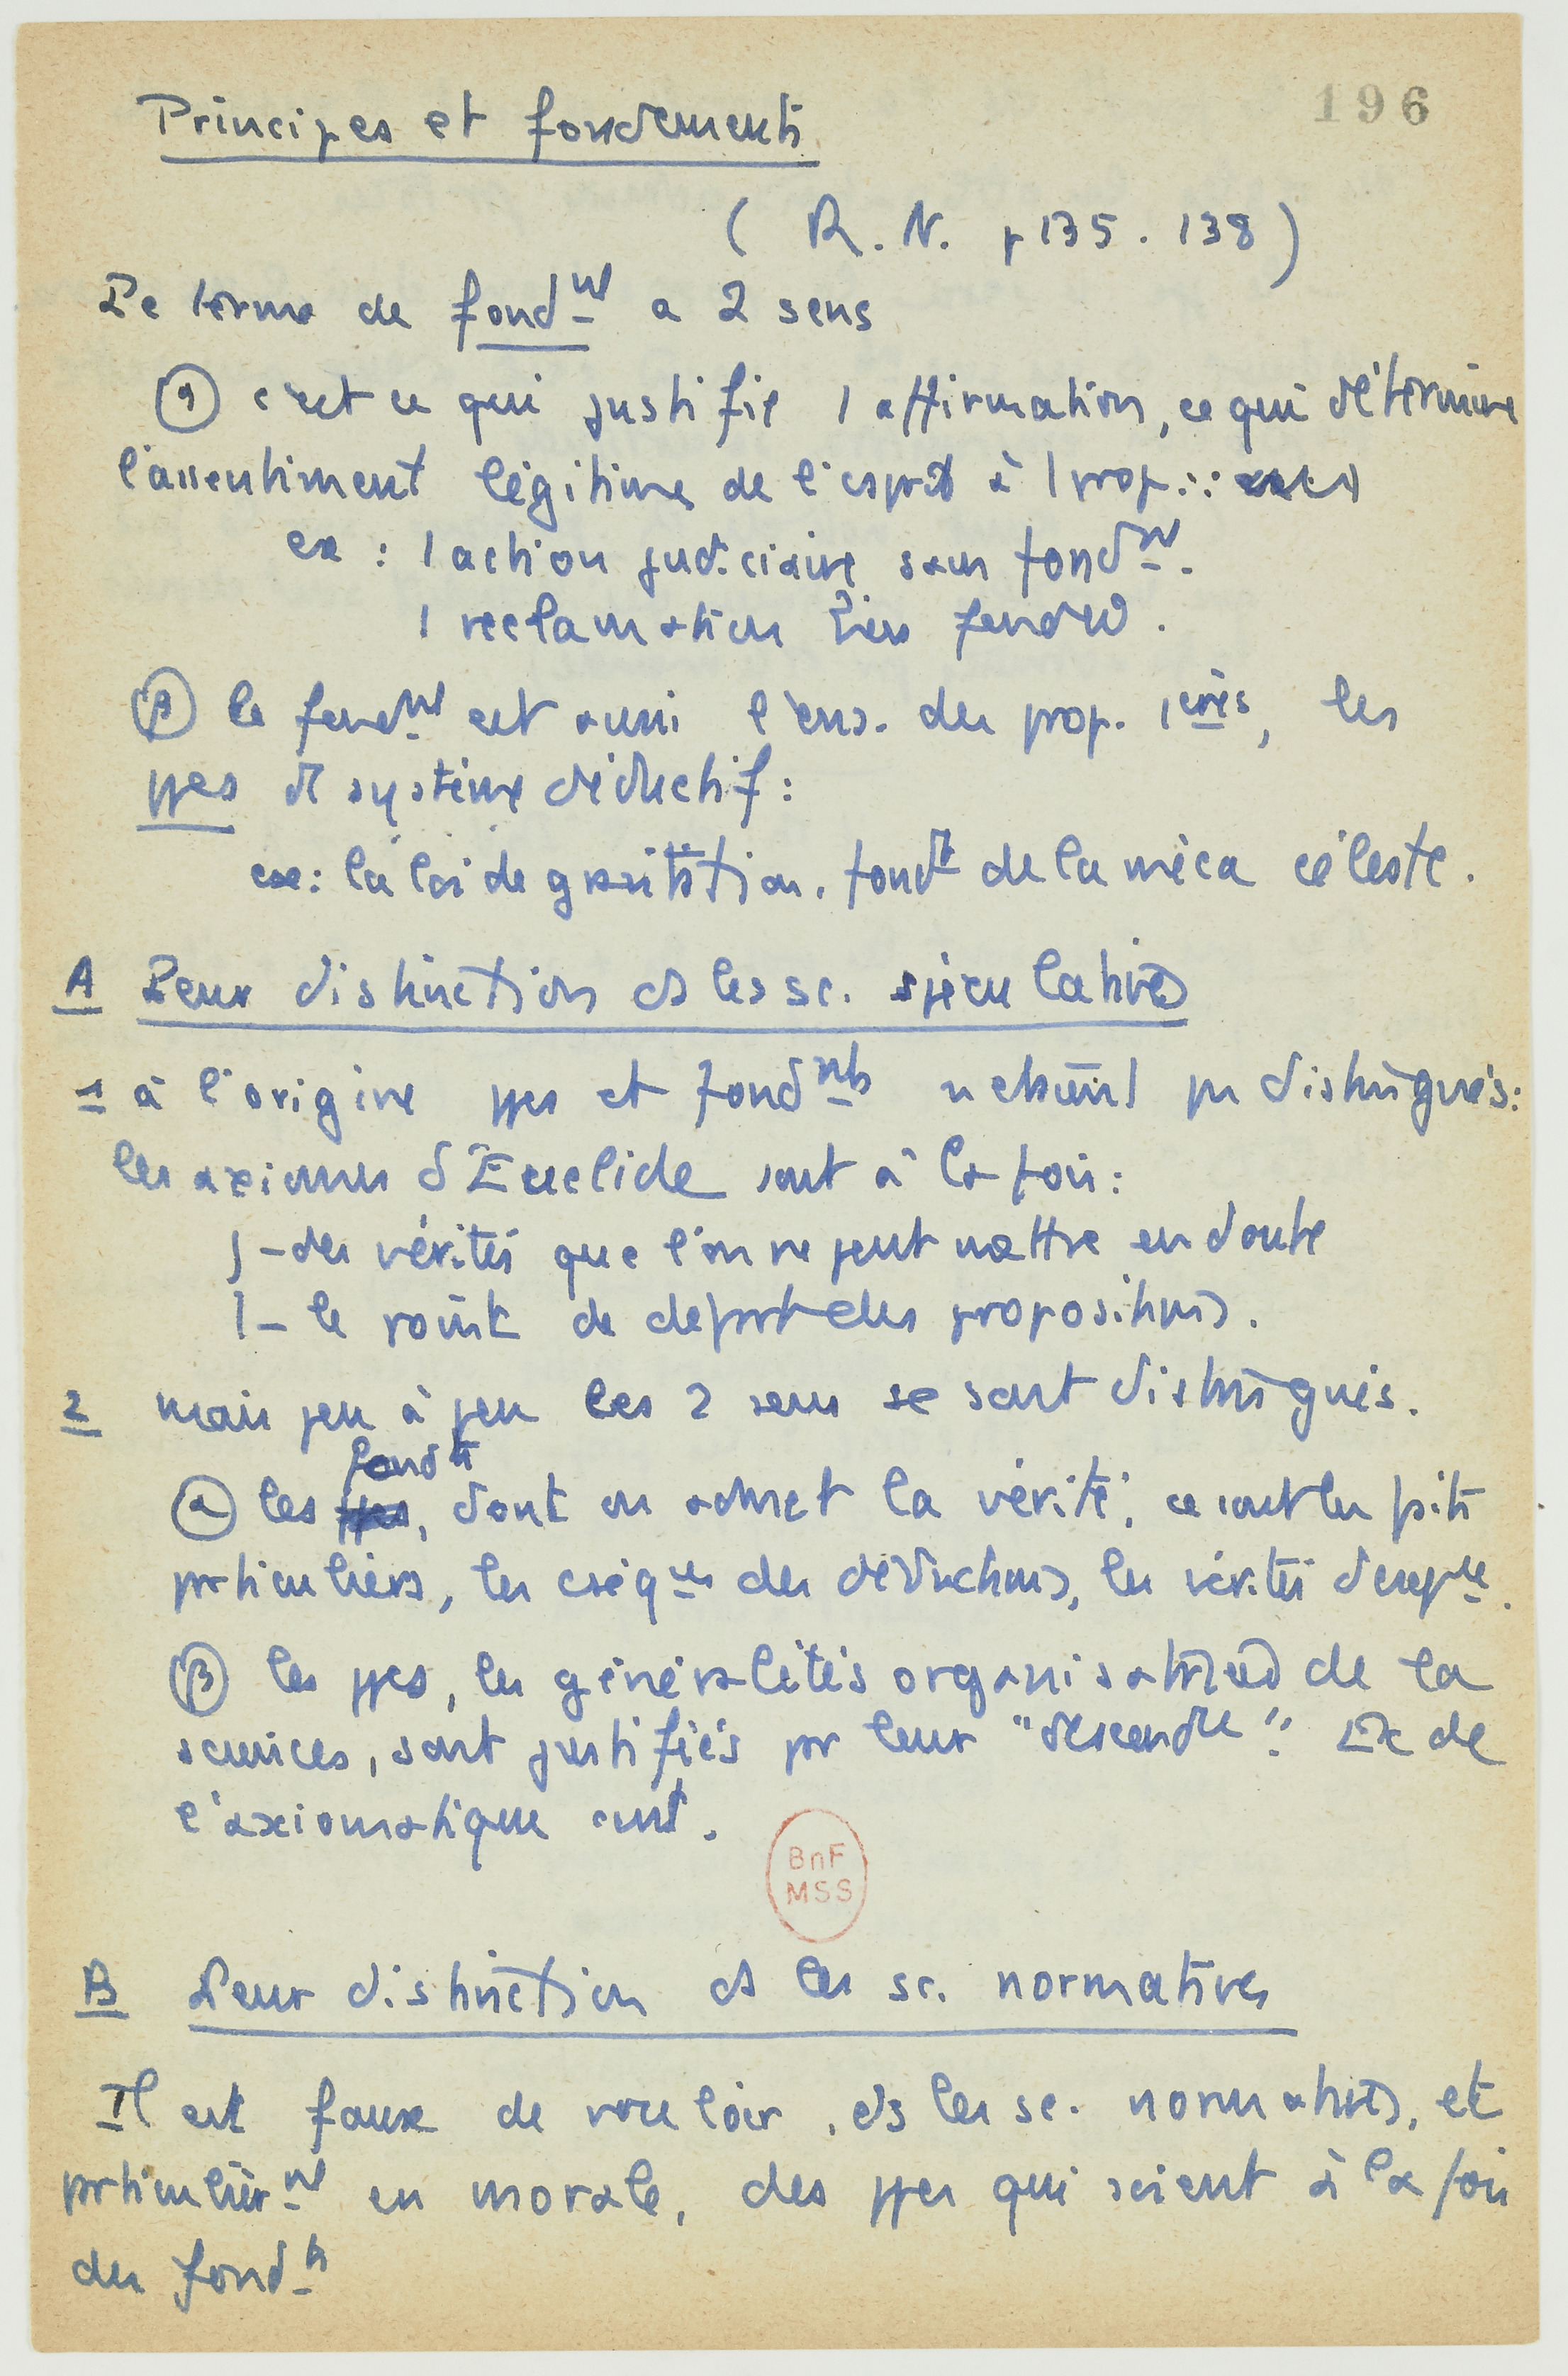 196
Principes et fondements
( R. N. p 135. 138)
Le terme de fondmt a 2 sens
① c'est ce qui justifie 1 affirmation, ce qui détermine
l'assentiment légitime de l'esprit à 1 prop. :
ex : 1 action judiciaire sans fondmt.
1 reclamation bien fondée.
β le fondmt est aussi l'ens. des prop. 1ères, les
ppes d'1 système déductif :
ex : la loi de gravitation, fondt de la méca céleste.
A Leur distinction ds les sc. spéculatives
1 à l'origine ppes et fondmts n'étaient pas distingués :
les axiomes d'Euclide sont à la fois :
- des vérités que l'on ne peut mettre en doute
- le point de départ des propositions.
2 mais peu à peu les 2 sens se sont distingués.
fondts
α les ppes, dont on admet la vérité ; ce sont les faits
particuliers, les cséqces des déductions, les vérités d'expce.
β les ppes, les généralités organisatrices de la
sciences, sont justifiés par leur "descendce". Ex de
l'axiomatique
BnF
MSS
B Leur distinction ds les sc. normatives
Il est faux de vouloir, ds les sc. normatives, et
particulièrmt en morale, des ppes qui soient à la fois
des fondts